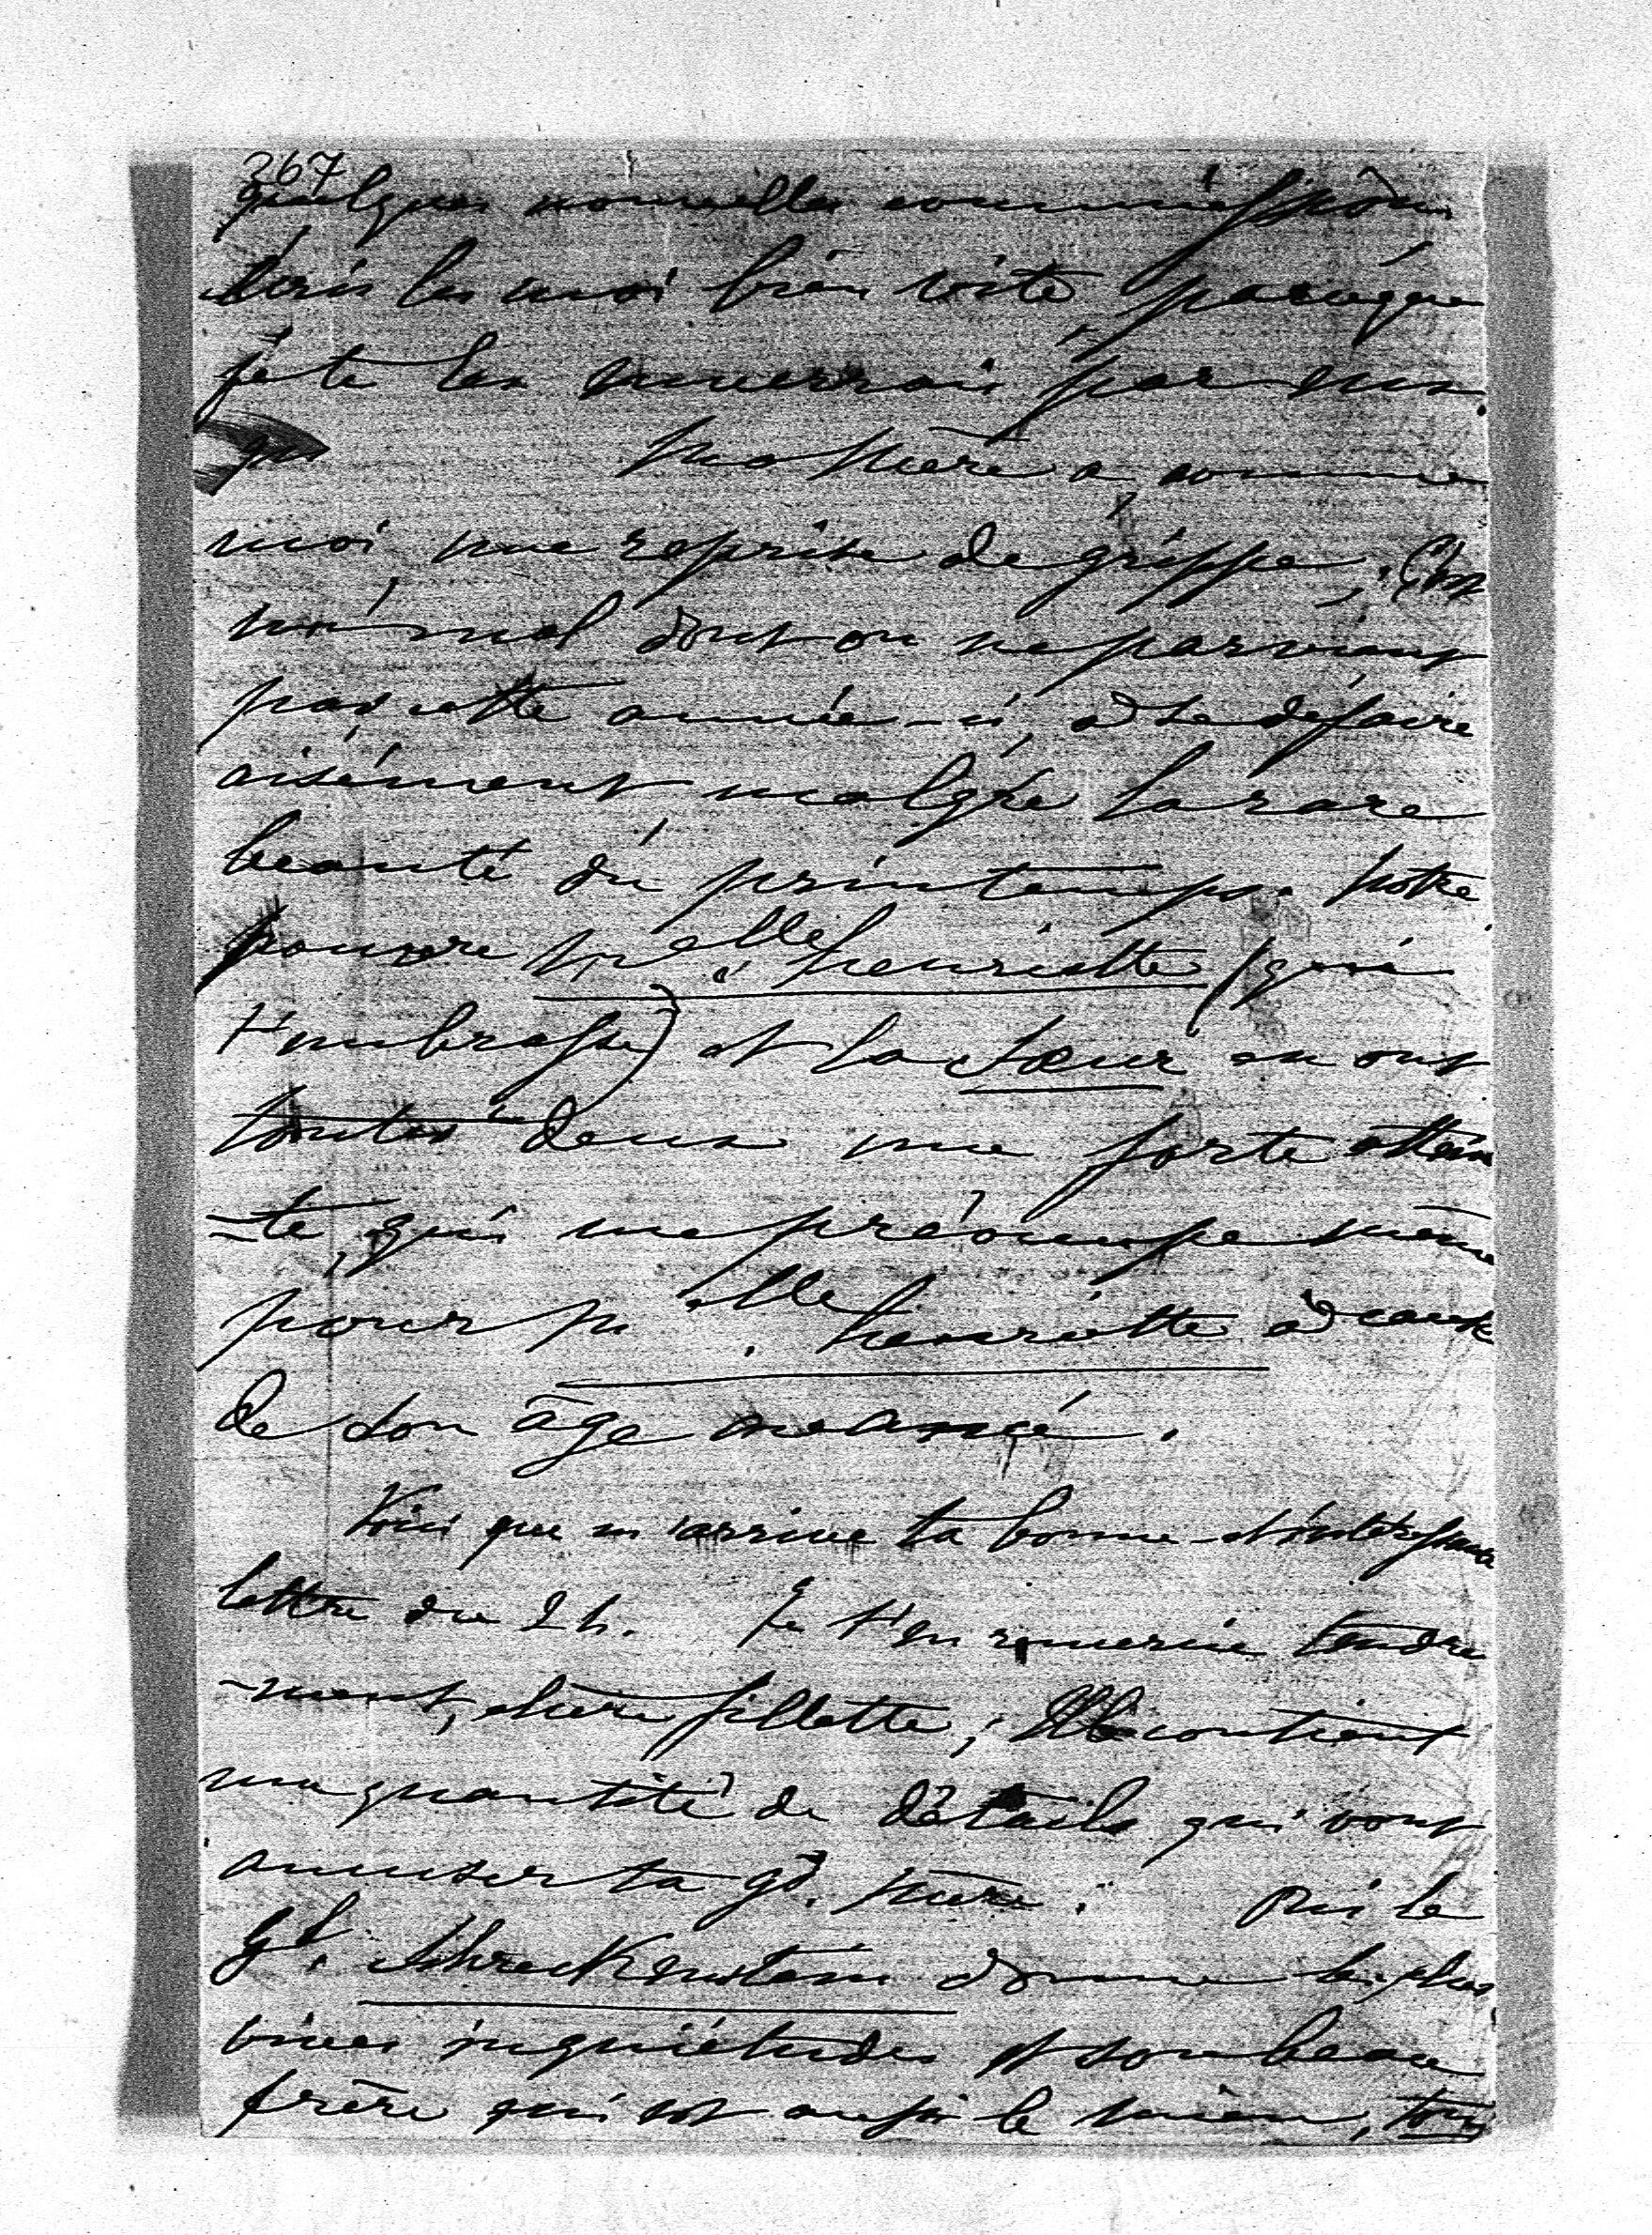 367
quelques nouvelles commissions
écris les moi bien vite parceque
je te les enverrais par
Ma Mère a, comme
moi, une reprise de grippe. C'est
un mal dont on ne parvient
pas, cette année-ci, à se défaire
aisément malgré la rare
beauté du printemps. Notre
pauvre Melle Henriette (qui
t'embrasse) et la Sœur en ont
toutes deux une forte attein
-te, qui me préoccupe même
pour Melle Henriette à cause
de son âge avancé.
Voici que m'arrive ta bonne et intéressante
lettre du 24. Je t'en remercie tendre
-ment, chère fillette; Elle contient
une quantité de détails qui vont
amuser ta gd. Mère. Oui le
Gl. Schreckenstein donne les plus
vives inquiétudes et son beau
frère qui est aussi le mien,